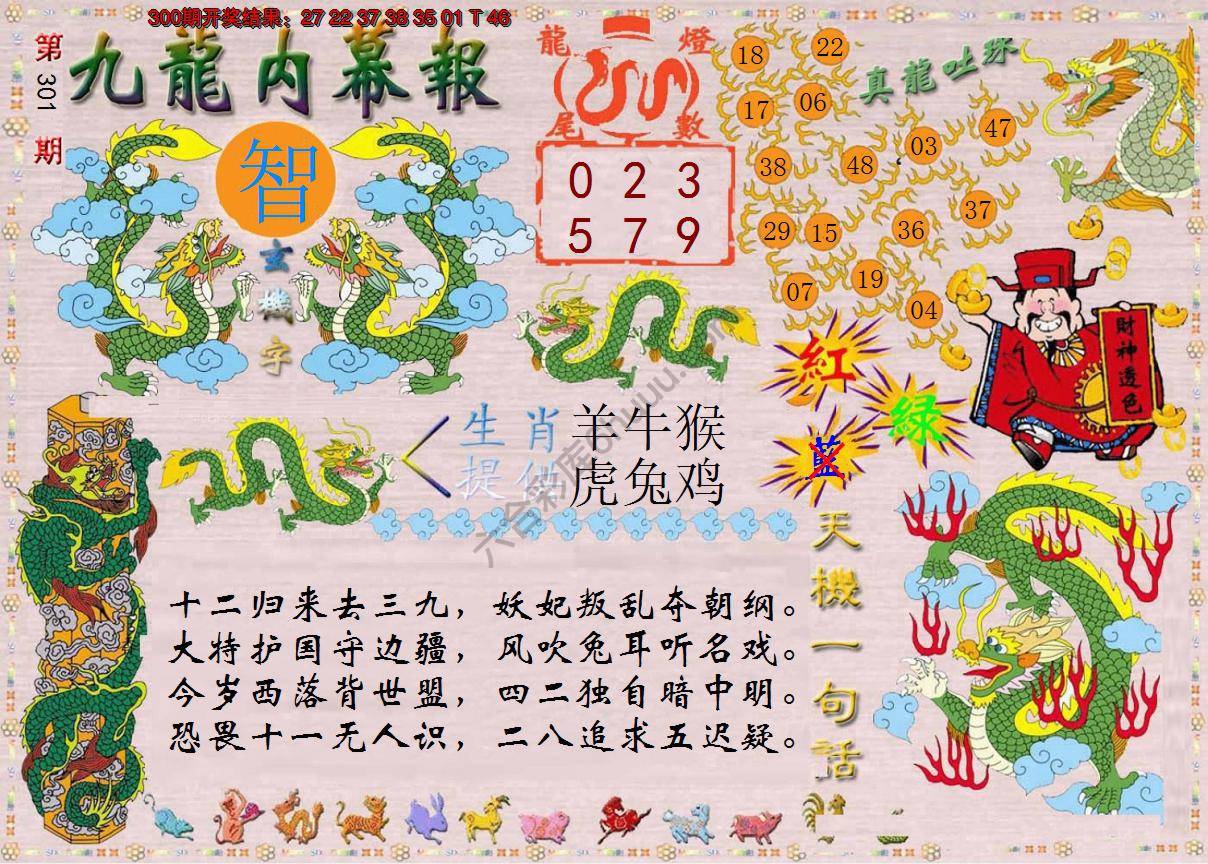 300期开奖结果：27 22 37 38 35 01 T 46
第301期
九龍内幕報
智
玄機字
龍燈
尾數
0 2 3
5 7 9
真龍吐珠
18 22
17 06
38 48 03 47
29 15 36 37
07 19 04
財神透色
紅
綠
藍
生肖 羊牛猴
提供 虎兔鸡
天機一句話
十二归来去三九，妖妃叛乱夺朝纲。
大特护国守边疆，风吹兔耳听名戏。
今岁西落背世盟，四二独自暗中明。
恐畏十一无人识，二八追求五迟疑。